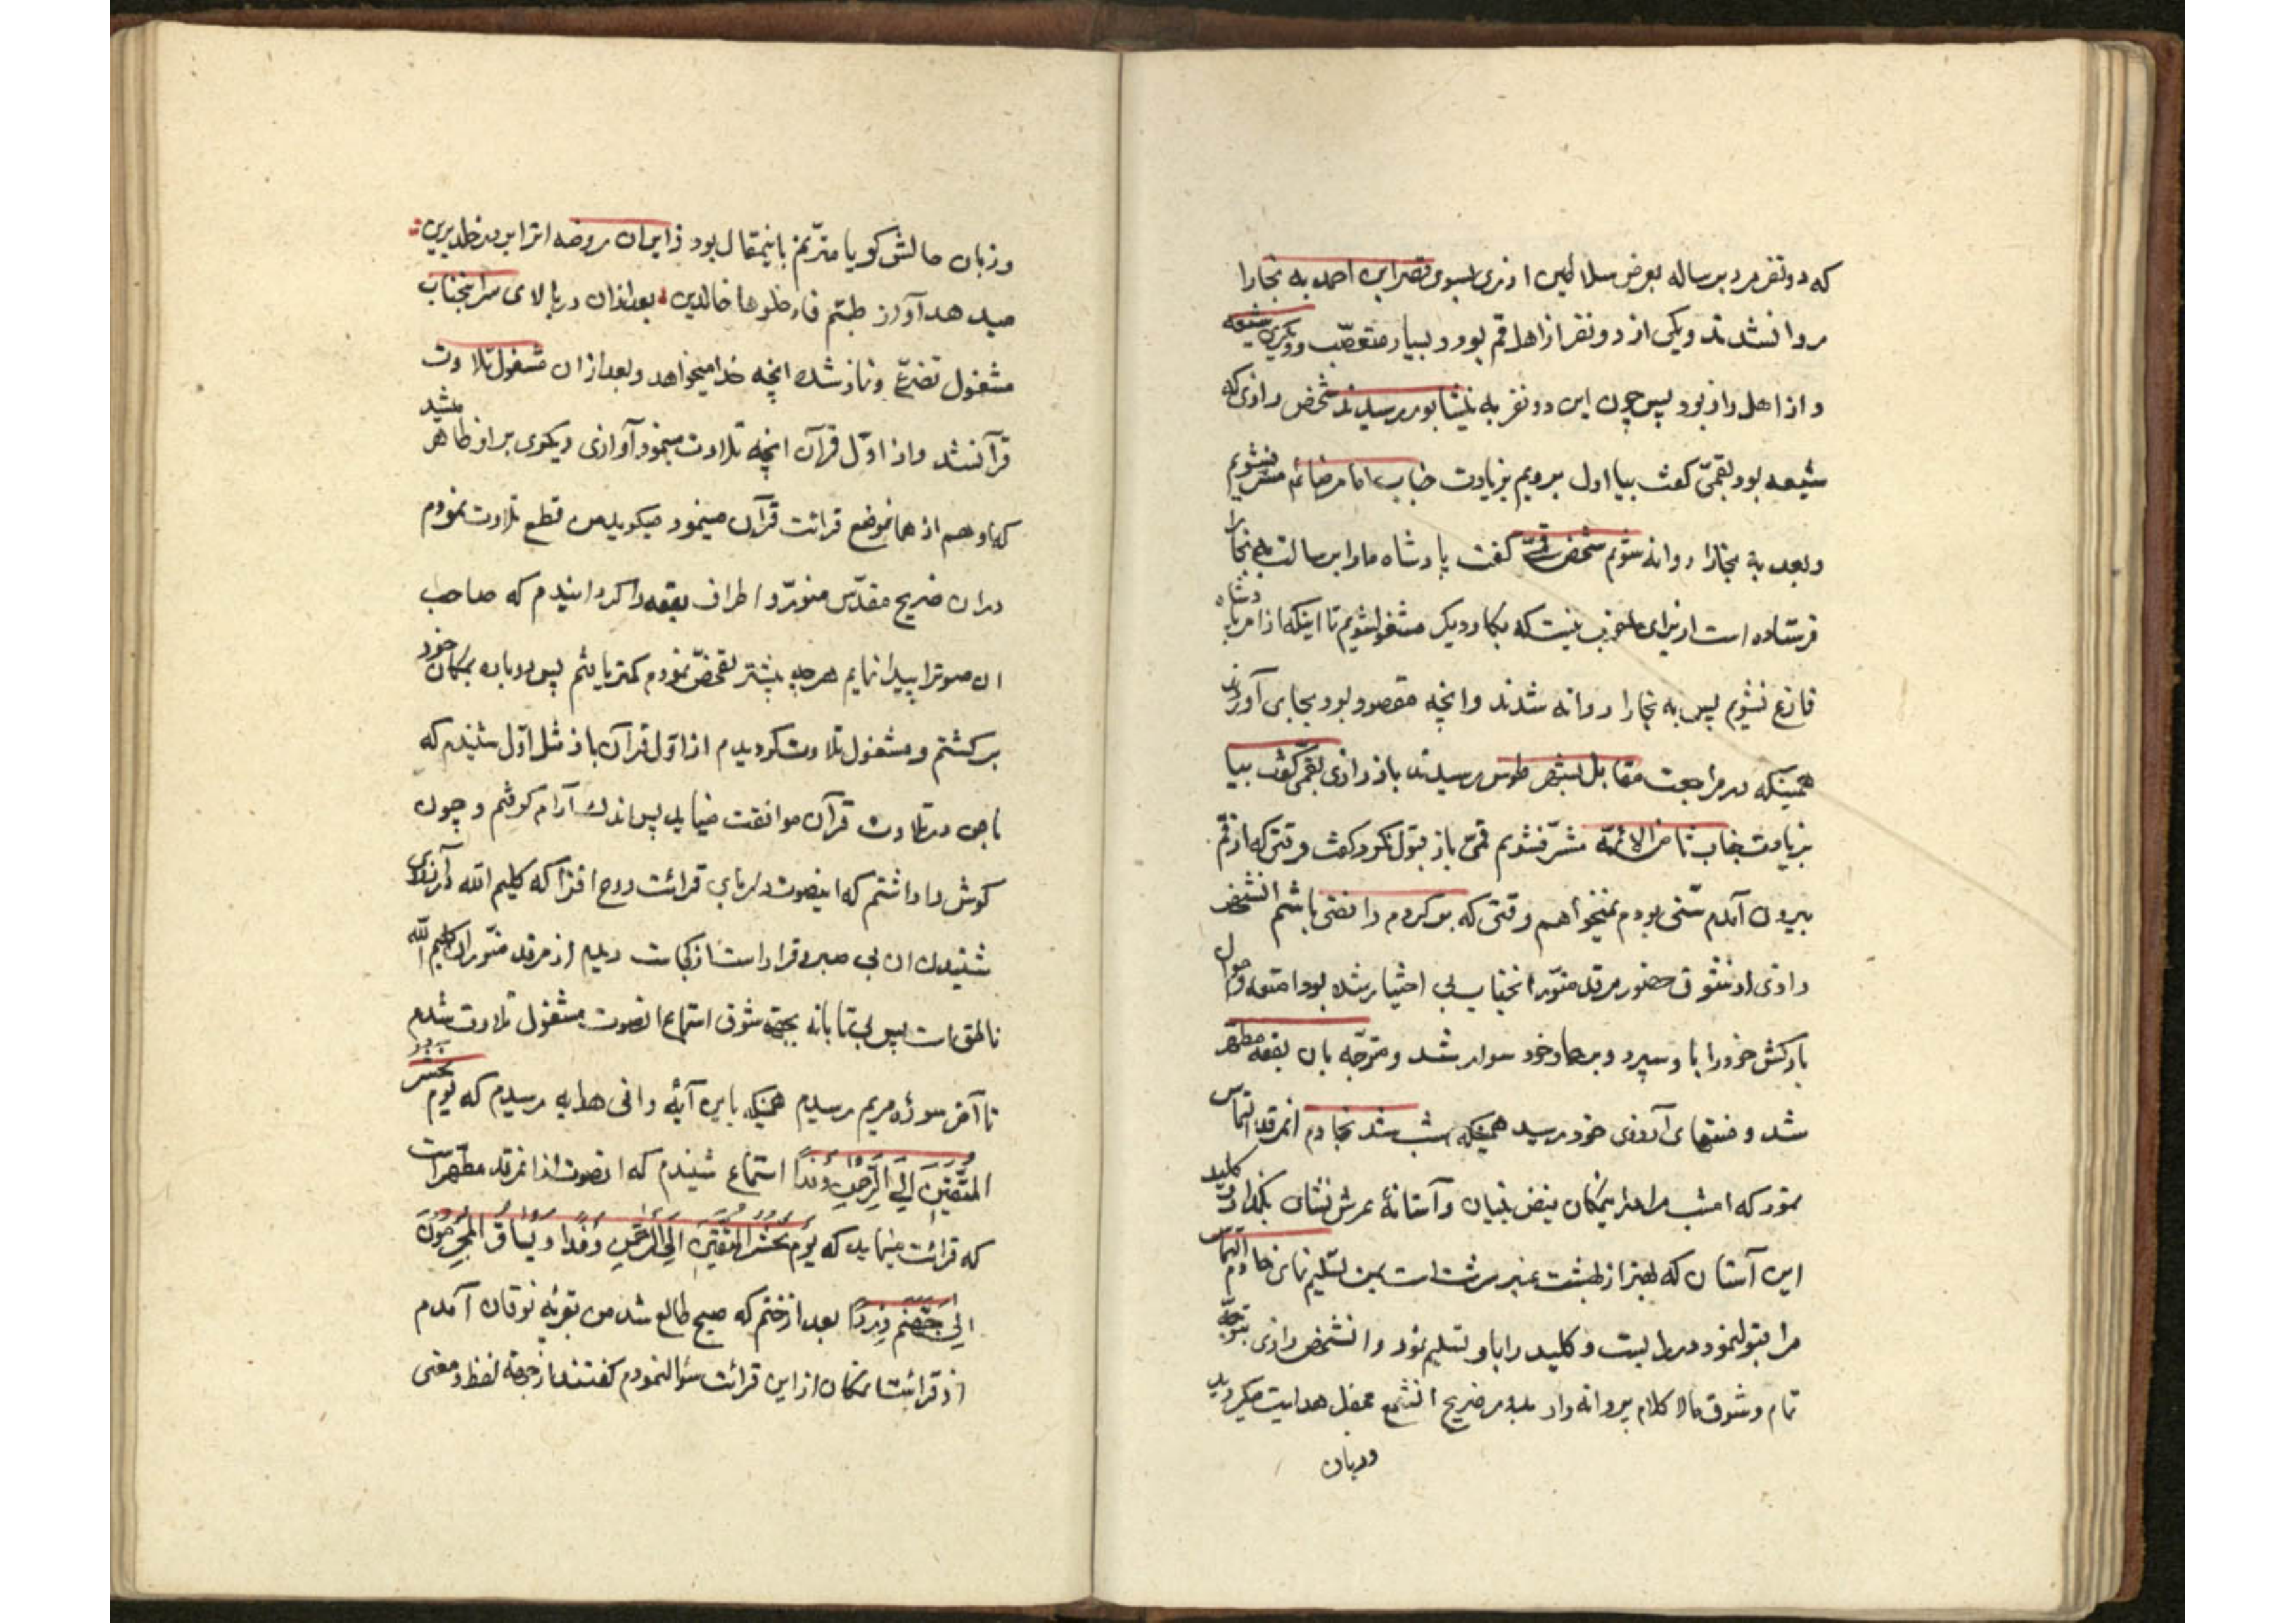 که دو نفر مرد برساله بعوض سلاطین از ری بسوی نصر ابن احمد به بخارا
روانشدند و یکی از دو نفر از اهل قم بود و بسیار متعصّب و دیگری شیعه
و از اهل راز بود پس چون این دو نفر به نیشابور رسیدند شخص رازی که
شیعه بود بقمیّ گفت بیا اول برویم بزیارت جناب امام رضا ئم مشرّفشویم
و بعد به بخارا روانه شویم شخص قمیّ گفت پادشاه ما را برسالت به بخارا
فرستاده است از برای ما خوب نیست که بکار دیگر مشغولشویم تا اینکه از امر پادشاه
فارغ نشویم پس به بخارا روانه شدند و انچه مقصود بود بجای آوردند
همینکه در مراجعت مقابل بشهر طوس رسیدند باز رازی بقمّی گفت بیا
بزیارت جناب ثامن الائمّه مشرّفشویم قمیّ باز قبول نکرد گفت وقتی که از قم
بیرون آمدم سنّی بودم نمیخواهم وقتی که بر گردم رافضی باشم انشخص
رازی از شوق حضور مرقد منوّر انجناب بی اختیار شده بود امتعه و احوال
بارکش خود را با و سپرد و بر حمار خود سوار شد و متوجّه بان بقعه مطهّر
شد و منتهای آرزوی خود رسید همینکه شب شد بخادم انمرقد التماس
نمود که امشب مرا در اینمکان فیض بنیان و آستانهٔ عرش نشان بگذار و کلید
این آستان که بهتر از بهشت عنبر سرشت است بمن تسلیم نمای خادم التماس
مرا قبولنمود در را بست و کلید را باو تسلیم نمود و انشخص رازی بتوجّه
تمام و شوق مالا کلام پروانه وار بدور ضریح انشمع محفل هدایت میگردید
و زبان
و زبان حالش گویا مترنّم باینمقال بود زایران روضه اترا بر در خلد برین
میدهد آواز طبتم فادخلوها خالدین بعد از ان در بالای سر انجناب
مشغول تضرّع و نماز شده انچه خدا میخواهد و بعد از ان مشغول تلاوت
قرآنشد و از اوّل قرآن انچه تلاوت مینمود آوازی دیگری بر او ظاهر میشد
که او هم از همانموضع قرائت قرآن مینمود میگوید من قطع تلاوت نمودم
در ان ضریح مقدّس منوّر و اطراف بقعه را گردانیدم که صاحب
ان صوترا پیدا نمایم هر چه بیشتر تفحّص نمودم کمتر یافتم پس دوباره بمکان خود
برگشتم و مشغول تلاوت گردیدم از اوّل قرآن باز مثل اوّل شنیدم که
با من در تلاوت قرآن موافقت مینماید پس اندک آرام گرفتم و چون
گوش دا داشتم که اینصوت دلربای قرائت روح افزا که کلیم الله در آرزوی
شنیدن ان بی صبر و قرار است از کجاست دیدم از مرقد منوّر ان کلیم الله
ناطق است پس بی تابانه بجهته شوق استماع انصوت مشغول تلاوت شدم
تا آخر سورهٔ مریم رسیدم همینکه باین آیهٔ وافی هدایه رسیدم که یَوم نَحشُر
المُتَّقینَ اِلَی الرَّحمنِ وَفداً استماع شنیدم که انصوت از انمرقد مطهّر است
که قرائت مینماید که یَومَ یُحشَرُ المُتَّقینَ اِلَی الرَّحمنِ وَفداً و یُساقُ المُجرِمونَ
اِلی جَهَنَّم وِرداً بعد از ختم که صبح طالع شد من بقریهٔ نوقان آمدم
از قرائتشان از این قرائت سؤالنمودم گفتند از جهته لفظ و معنی